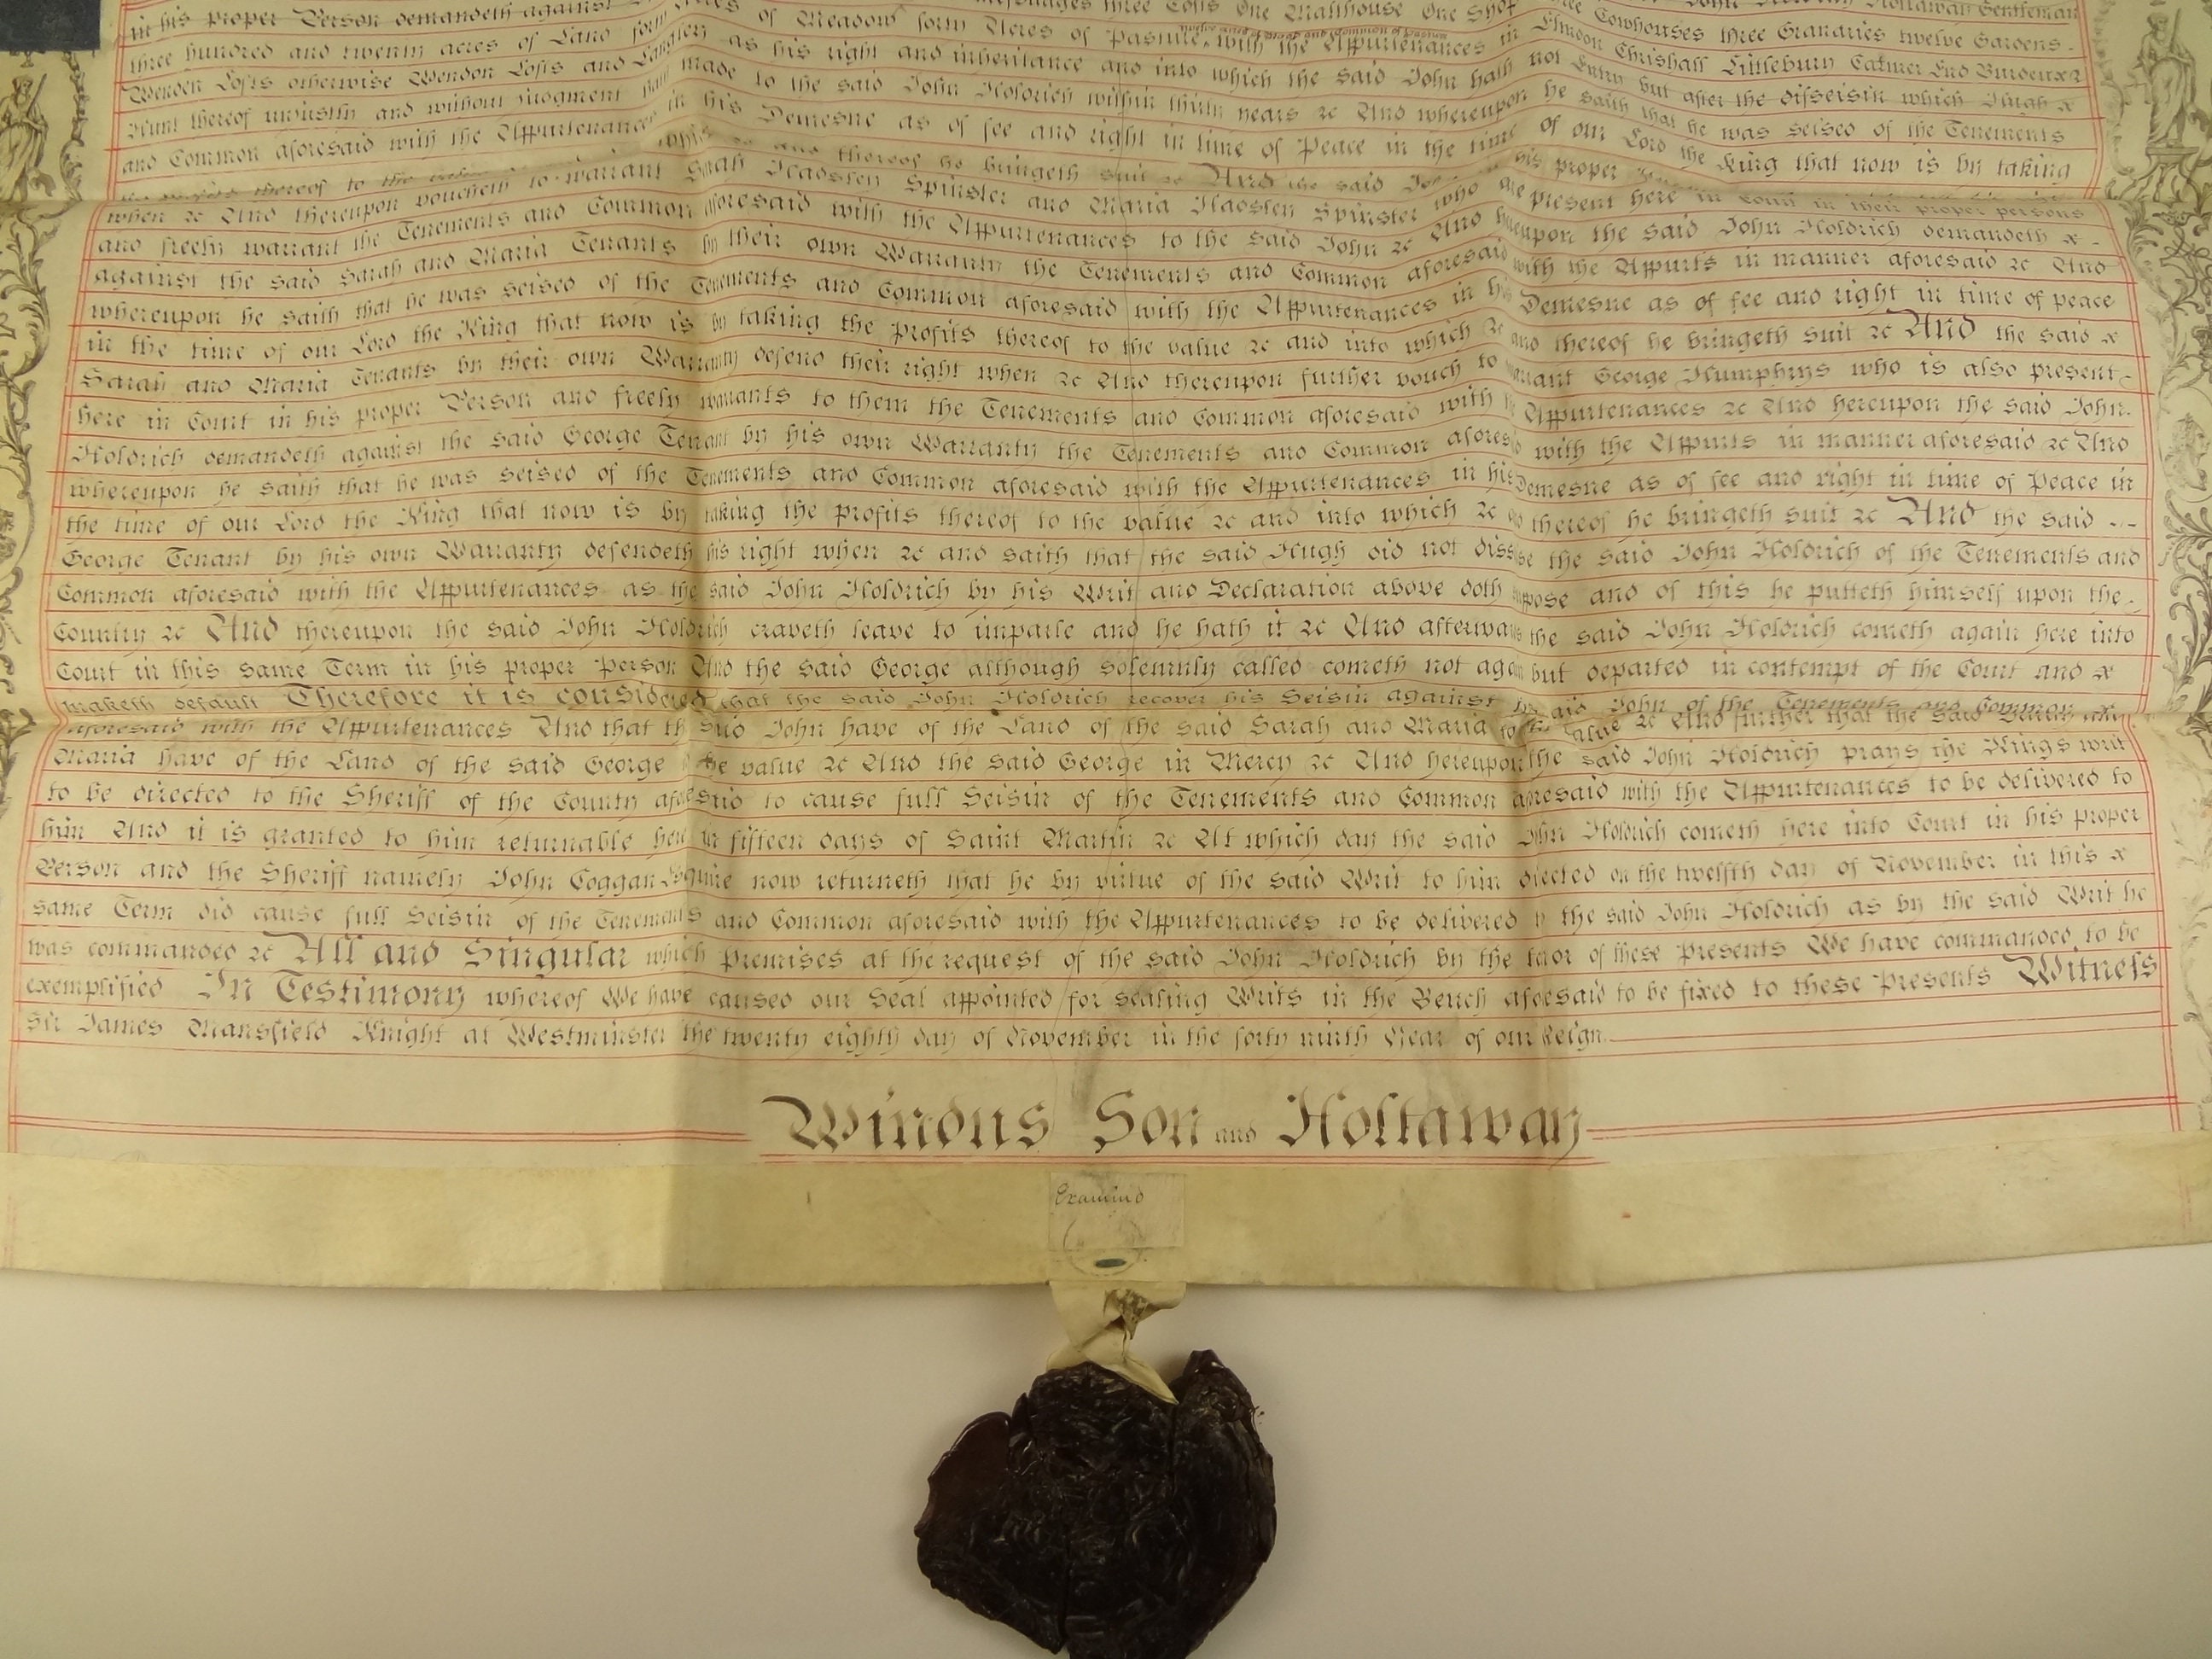 in his proper Person demandeth against Messuages three Tofts One Malthouse One Cowhouses three Granaries twelve Gardens
three hundred and twenty acres of Land forty Acres of Meadow forty Acres of Pasture with the Appurtenances in Elmdon Chrishall Littlebury Catmer End
Wenden Lofts otherwise Wendon Lofts and Langley as his right and inheritance and into which the said John hath not Entry but after the disseisin which Hugh
Hunt thereof unjustly and without judgment hath made to the said John Holdrich within thirty years &c And whereupon he saith that he was seised of the Tenements
and Common aforesaid with the Appurtenances in his Demesne as of fee and right in time of Peace in the time of our Lord the King that now is by taking
the profits thereof to the and thereof he bringeth suit &c And the said his proper
when &c And thereupon voucheth to warrant Sarah Spinster and Maria Spinster who are present here in Court in their proper persons
and freely warrant the Tenements and Common aforesaid with the Appurtenances to the said John &c And hereupon the said John Holdrich demandeth
against the said Sarah and Maria Tenants by their own Warranty the Tenements and Common aforesaid with the Appurts in manner aforesaid &c And
whereupon he saith that he was seised of the Tenements and Common aforesaid with the Appurtenances in his Demesne as of fee and right in time of peace
in the time of our Lord the King that now is by taking the profits thereof to the value &c and into which &c and thereof he bringeth suit &c And the said
Sarah and Maria Tenants by their own Warranty defend their right when &c And thereupon further vouch to warrant George Humphrys who is also present
here in Court in his proper Person and freely warrants to them the Tenements and Common aforesaid with the Appurtenances &c And hereupon the said John
Holdrich demandeth against the said George Tenant by his own Warranty the Tenements and Common aforesaid with the Appurts in manner aforesaid &c And
whereupon he saith that he was seised of the Tenements and Common aforesaid with the Appurtenances in his Demesne as of fee and right in time of Peace in
the time of our Lord the King that now is by taking the profits thereof to the value &c and into which &c and thereof he bringeth suit &c And the said
George Tenant by his own Warranty defendeth his right when &c and saith that the said Hugh did not disseise the said John Holdrich of the Tenements and
Common aforesaid with the Appurtenances as the said John Holdrich by his Writ and Declaration above doth suppose and of this he putteth himself upon the
Country &c And thereupon the said John Holdrich craveth leave to imparle and he hath it &c And afterwards the said John Holdrich cometh again here into
Court in this same Term in his proper Person And the said George although solemnly called cometh not again but departed in contempt of the Court and
maketh default Therefore it is considered that the said John Holdrich recover his Seisin against the said John of the Tenements and Common
aforesaid with the Appurtenances And that the said John have of the Land of the said Sarah and Maria to the value &c And further that the said Sarah and
Maria have of the Land of the said George to the value &c And the said George in Mercy &c And hereupon the said John Holdrich prays the Kings writ
to be directed to the Sheriff of the County aforesaid to cause full Seisin of the Tenements and Common aforesaid with the Appurtenances to be delivered to
him And it is granted to him returnable here in fifteen days of Saint Martin &c At which day the said John Holdrich cometh here into Court in his proper
Person and the Sheriff namely John Coggan Esquire now returneth that he by virtue of the said Writ to him directed on the twelfth day of November in this
same Term did cause full Seisin of the Tenements and Common aforesaid with the Appurtenances to be delivered to the said John Holdrich as by the said Writ he
was commanded &c All and Singular which Premises at the request of the said John Holdrich by the tenor of these Presents We have commanded to be
exemplified In Testimony whereof We have caused our Seal appointed for sealing Writs in the Bench aforesaid to be fixed to these Presents Witness
Sir James Mansfield Knight at Westminster the twenty eighth day of November in the forty ninth Year of our Reign
Windus Son and Holtaway
Examined